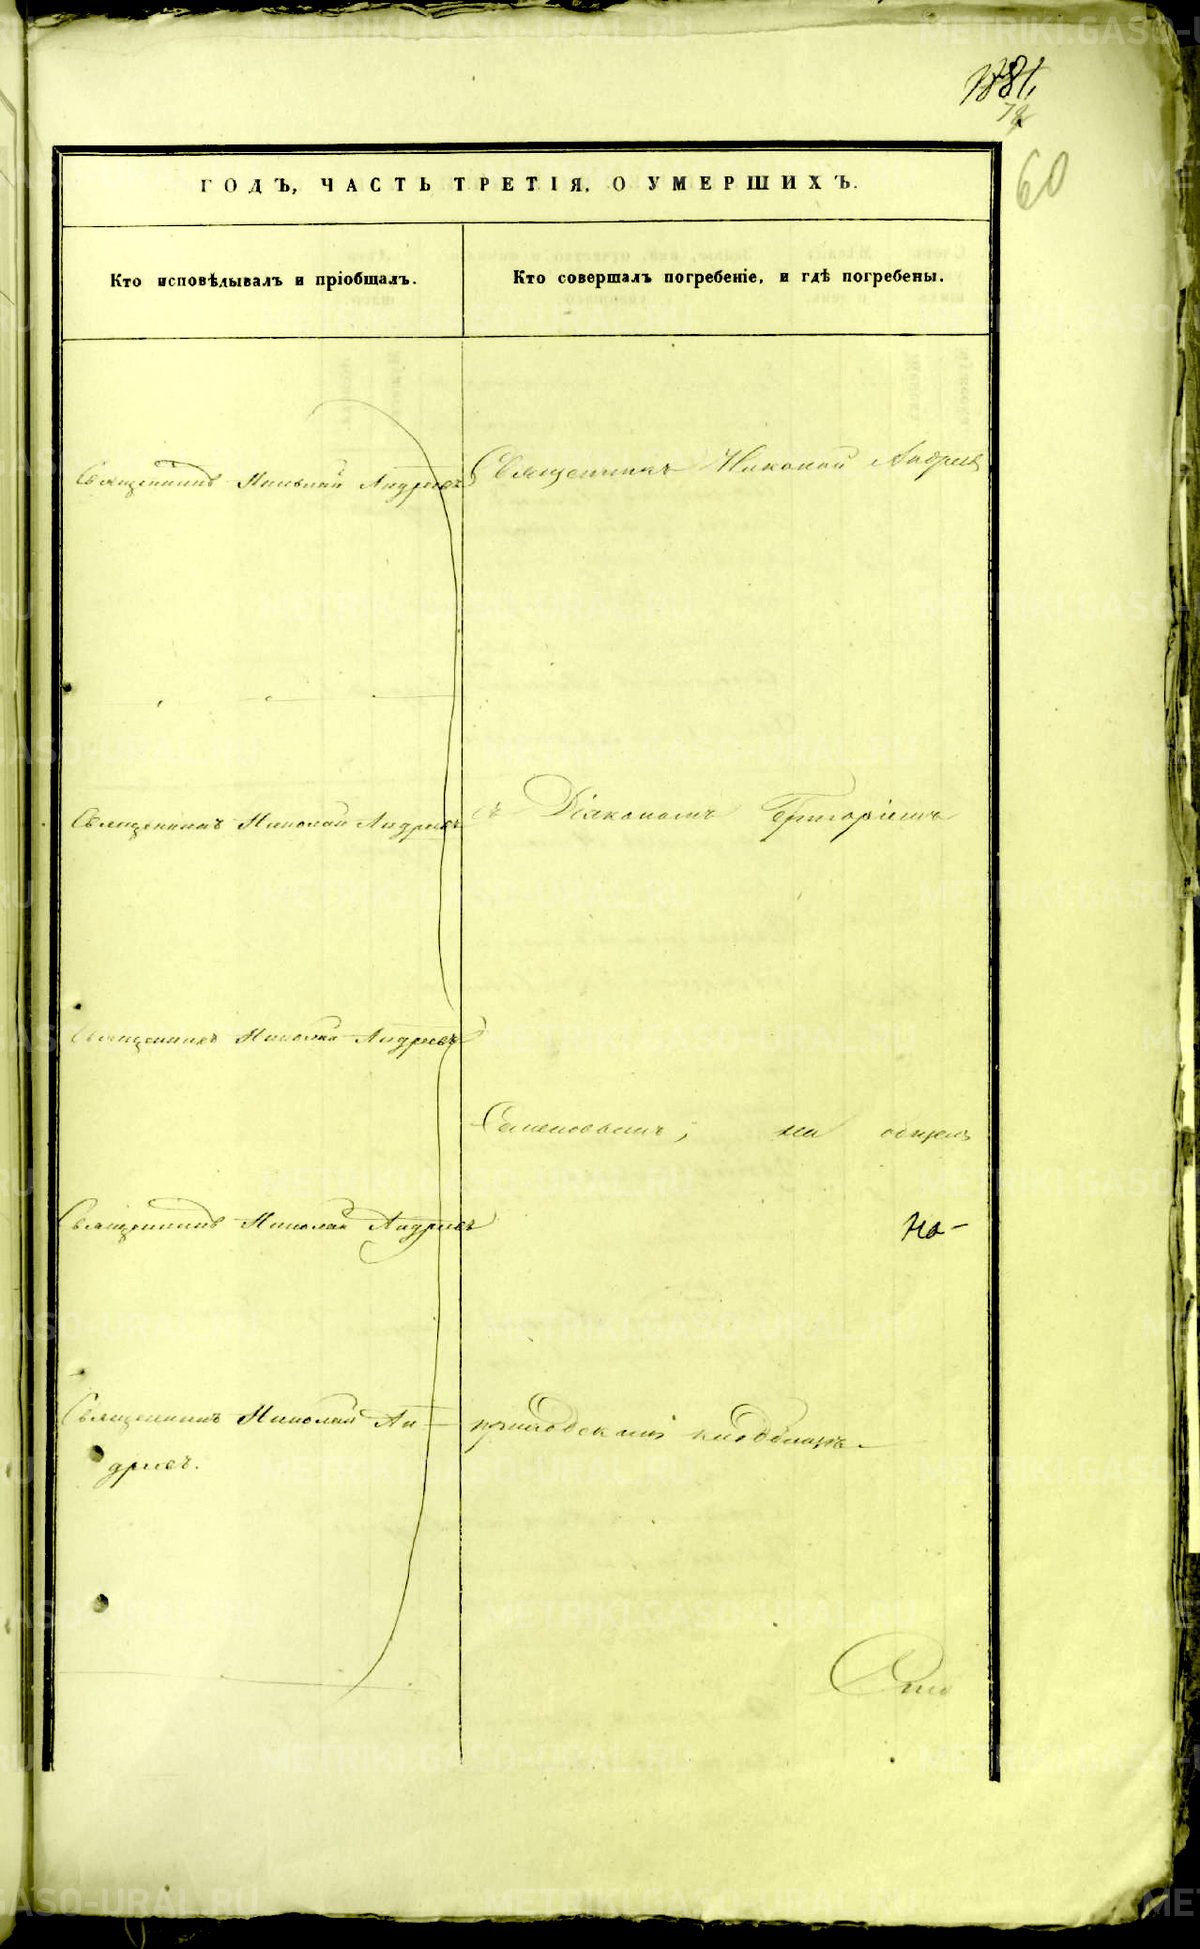 60
ГОДЪ, ЧАСТЬ ТРЕТІЯ, О УМЕРШИХЪ.
Кто исповѣдывалъ и пріобщалъ.
Кто совершалъ погребеніе, и гдѣ погребены.
Священникъ Николай Андреевъ
Священникъ Николай Андреевъ
Священникъ Николай Андреевъ
съ Діакономъ Григоріемъ
Священникъ Николай Андреевъ
Семеновымъ, на общемъ
Священникъ Николай Андреевъ
На-
Священникъ Николай Ан-
дреевъ.
приходскомъ кладбищѣ
METRIKI.GASO-URAL.RU